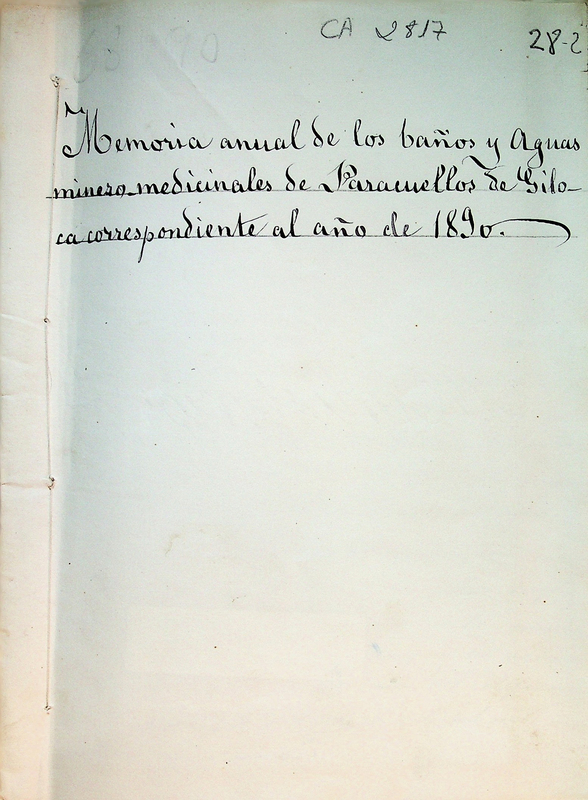 CA 2817
28-2
Memoria anual de los baños y Aguas
minero-medicinales de Paracuellos de Gilo-
ca correspondiente al año de 1890.